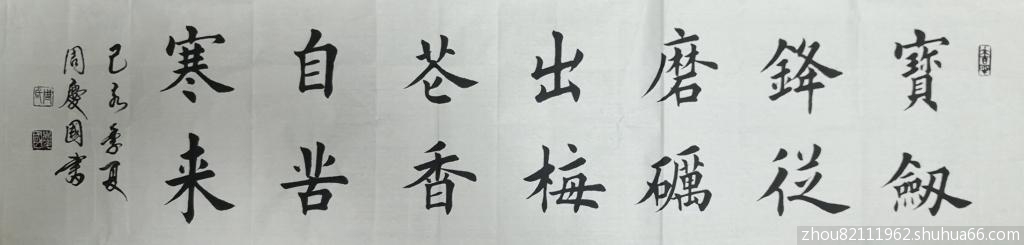 寶劔
鋒從
磨礪
出梅
花香
自苦
寒来
己亥季夏
周慶國書
zhou82111962.shuhua66.com